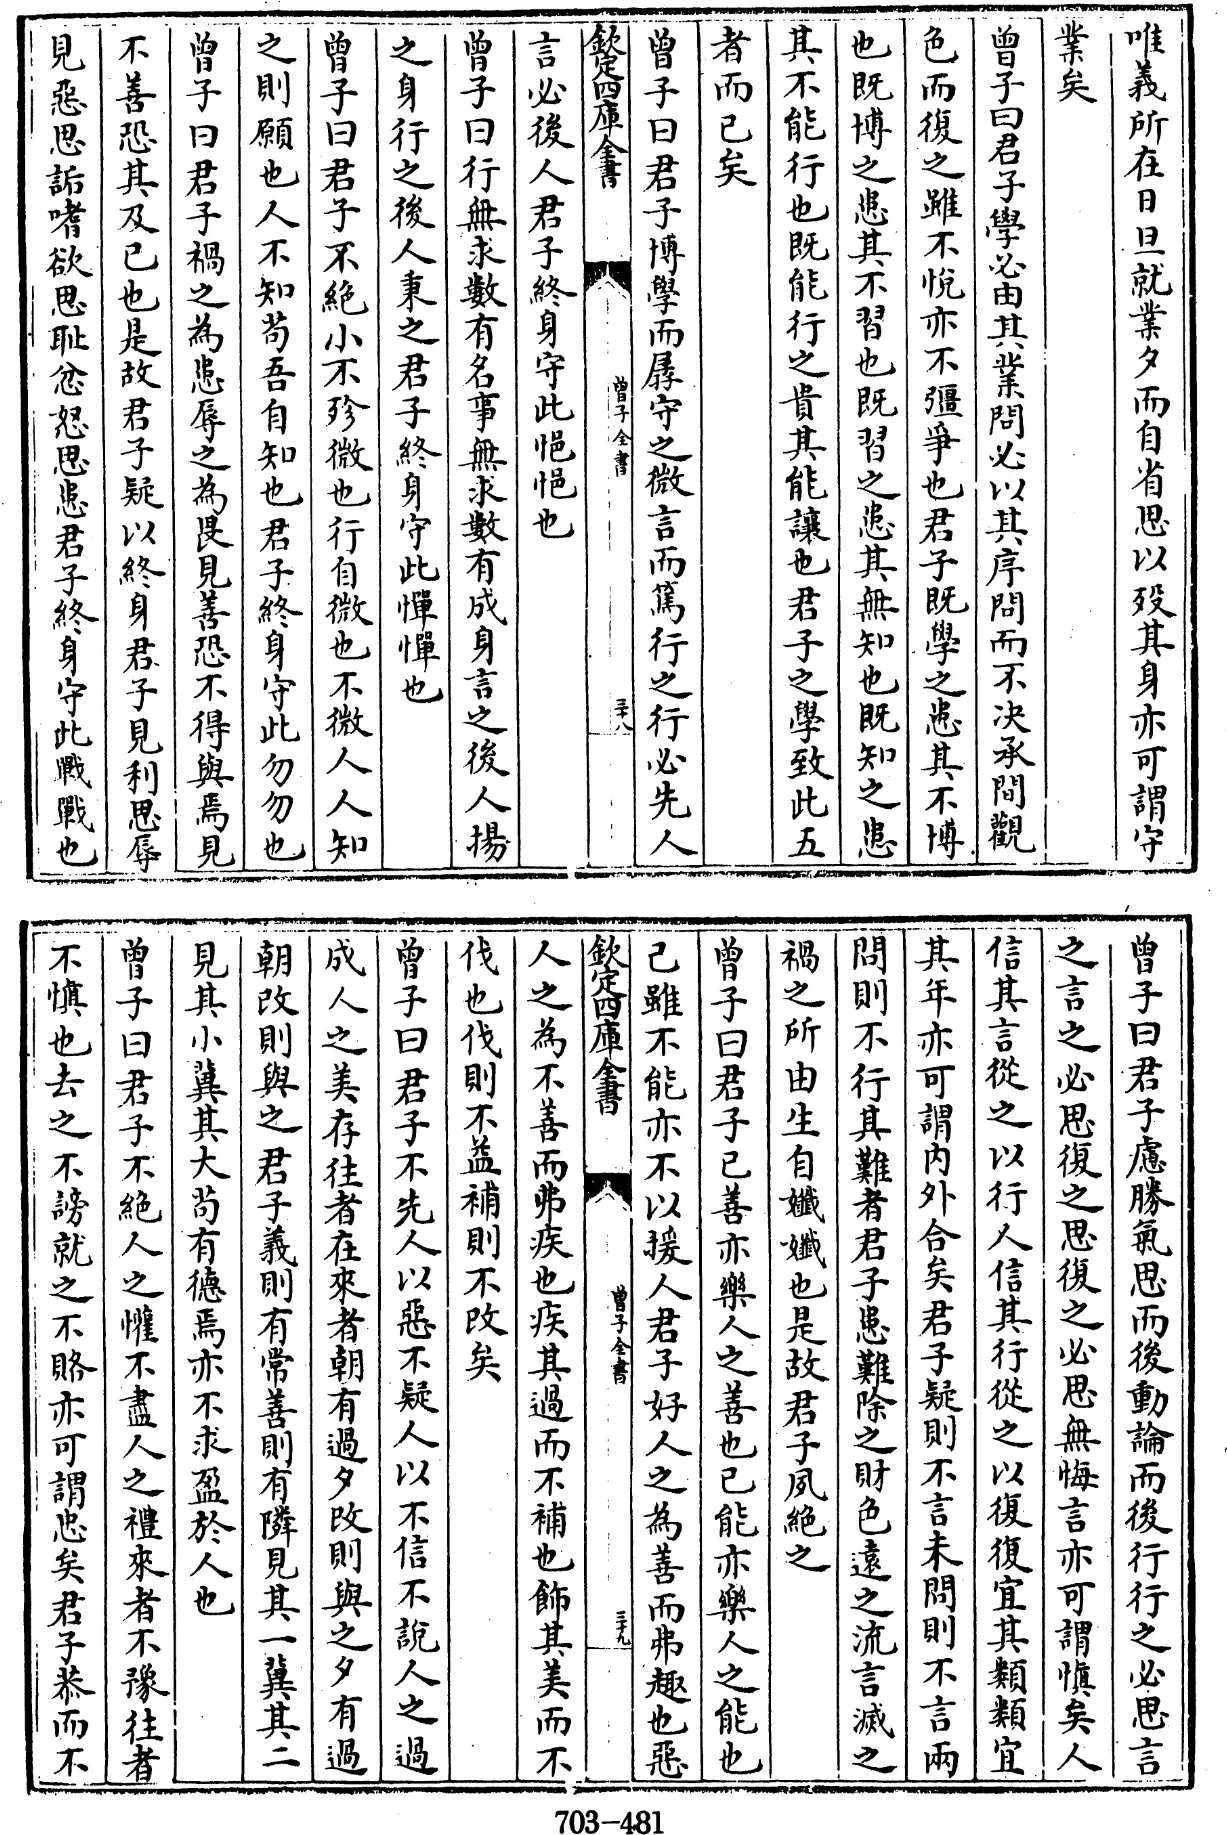 唯義所在日旦就業夕而自省思以殁其身亦可謂守
業矣
曾子曰君子學必由其業問必以其序問而不决承間觀
色而復之雖不悅亦不彊爭也君子既學之患其不博
也既博之患其不習也既習之患其無知也既知之患
其不能行也既能行之貴其能讓也君子之學致此五
者而已矣
曾子曰君子博學而孱守之微言而篤行之行必先人
欽定四庫全書
曾子全書
三十八
言必後人君子終身守此悒悒也
曾子曰行無求數有名事無求數有成身言之後人揚
之身行之後人秉之君子終身守此憚憚也
曾子曰君子不絶小不殄微也行自微也不微人人知
之則願也人不知苟吾自知也君子終身守此勿勿也
曾子曰君子禍之為患辱之為畏見善恐不得與焉見
不善恐其及己也是故君子疑以終身君子見利思辱
見惡思詬嗜欲思恥忿怒思患君子終身守此戰戰也
曾子曰君子慮勝氣思而後動論而後行行之必思言
之言之必思復之思復之必思無悔言亦可謂慎矣人
信其言從之以行人信其行從之以復復宜其類類宜
其年亦可謂内外合矣君子疑則不言未問則不言兩
問則不行其難者君子患難除之財色遠之流言滅之
禍之所由生自孅孅也是故君子夙絶之
曾子曰君子己善亦樂人之善也己能亦樂人之能也
己雖不能亦不以援人君子好人之為善而弗趣也惡
欽定四庫全書
曾子全書
三十九
人之為不善而弗疾也疾其過而不補也飾其美而不
伐也伐則不益補則不改矣
曾子曰君子不先人以惡不疑人以不信不說人之過
成人之美存往者在來者朝有過夕改則與之夕有過
朝改則與之君子義則有常善則有隣見其一冀其二
見其小冀其大苟有德焉亦不求盈於人也
曾子曰君子不絶人之懽不盡人之禮來者不豫往者
不慎也去之不謗就之不賂亦可謂忠矣君子恭而不
703-481